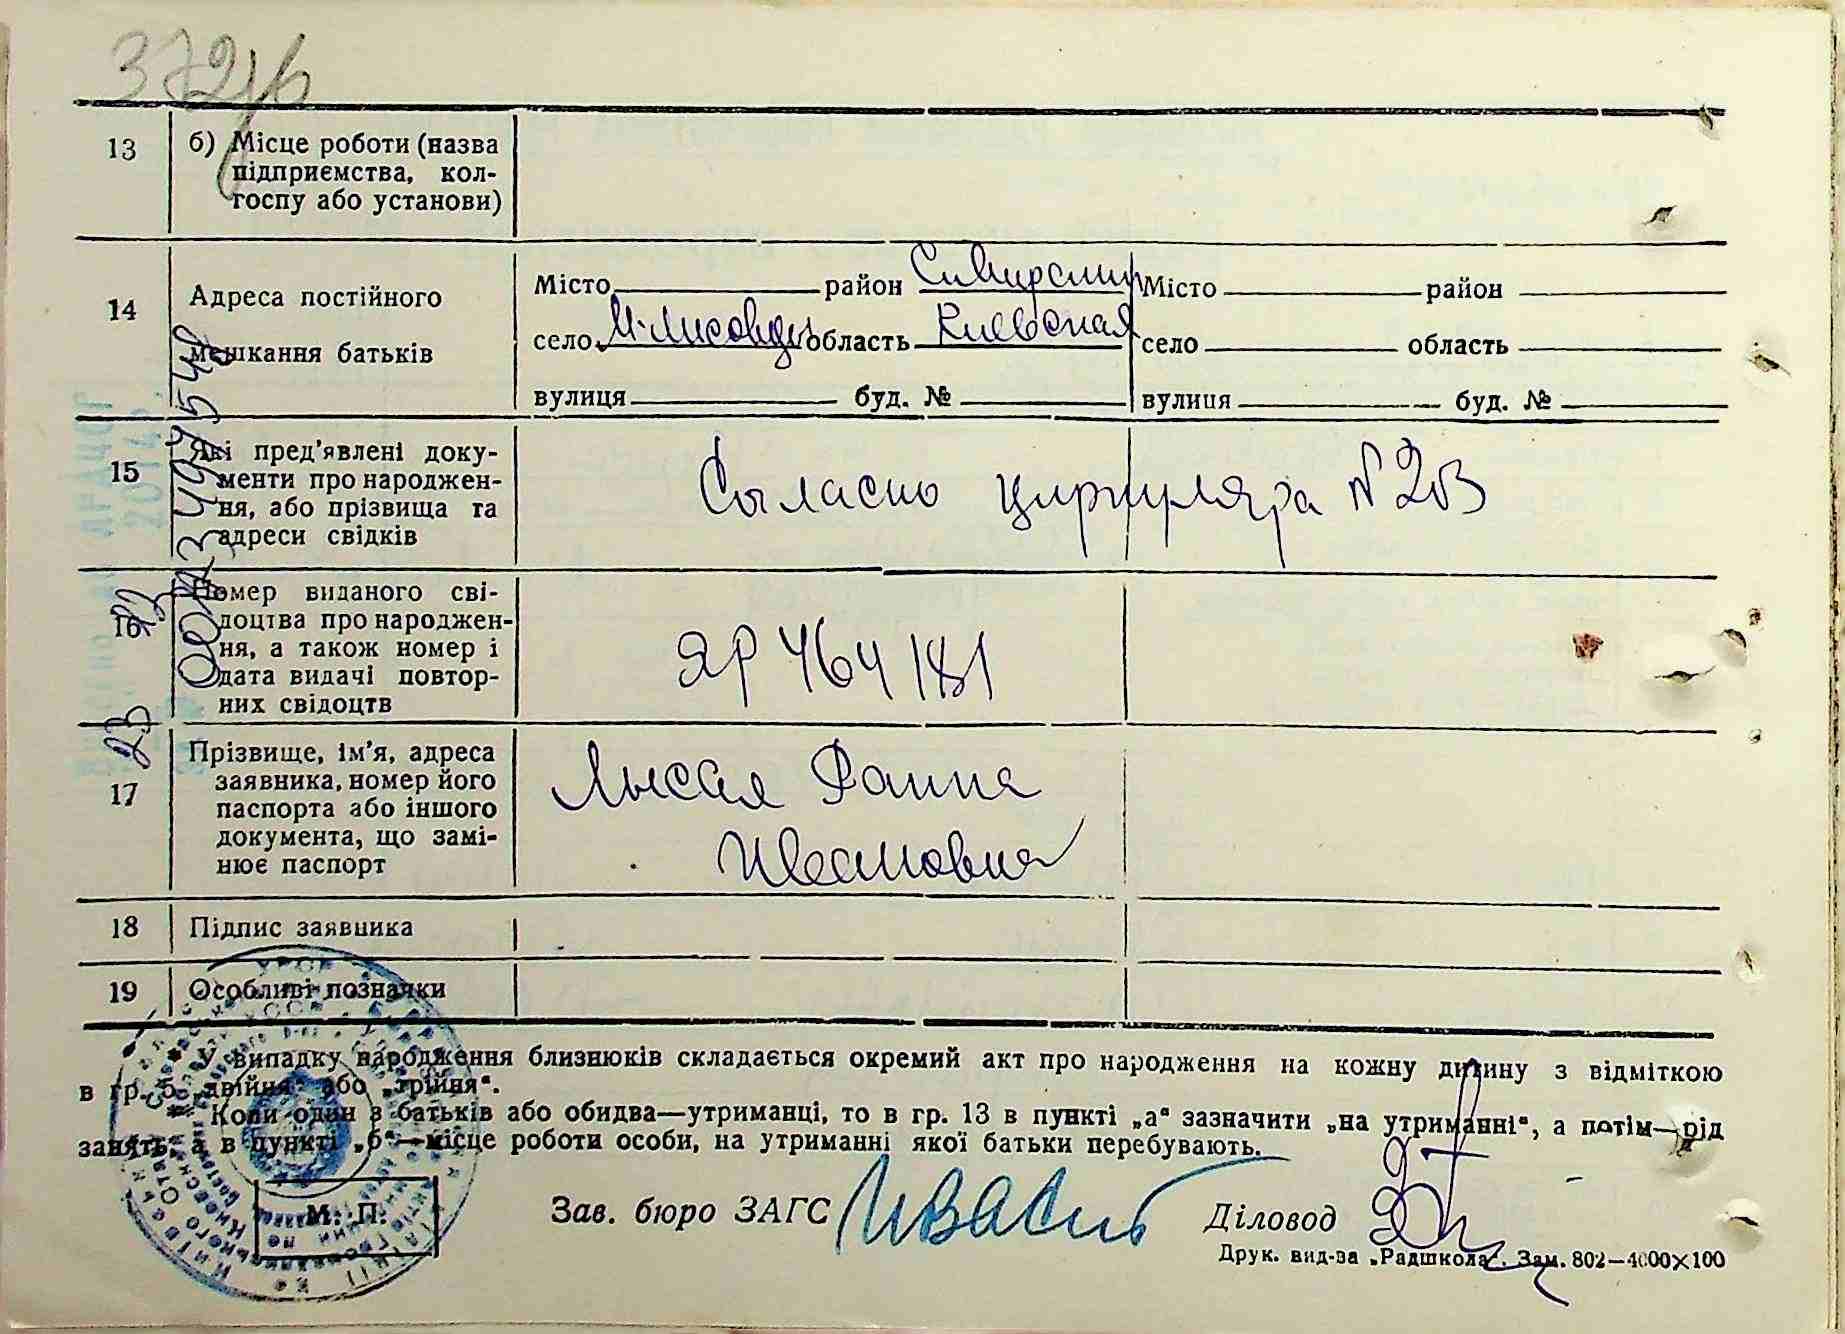 372
13 б) Місце роботи (назва
підприємства, кол-
госпу або установи)
14 Адреса постійного
мешкання батьків
Місто район Місто район
село область Киевская село область
вулиця буд. № вулиця буд. №
15 Які пред'явлені доку-
менти про народжен-
ня, або прізвища та
адреси свідків
Согласно циркуляра №203
16 Номер виданого сві-
доцтва про народжен-
ня, а також номер і
дата видачі повтор-
них свідоцтв
ЯР 464181
17 Прізвище, ім'я, адреса
заявника, номер його
паспорта або іншого
документа, що замі-
нює паспорт
Лысая
Ивановна
18 Підпис заявника
19 Особливі позначки
У випадку народження близнюків складається окремий акт про народження на кожну дитину з відміткою
в гр. 5 „двійня“ або „трійня“.
Коли один з батьків або обидва—утриманці, то в гр. 13 в пункті „а“ зазначити „на утриманні“, а потім—рід
занять, а в пункті „б“—місце роботи особи, на утриманні якої батьки перебувають.
М. П.
Зав. бюро ЗАГС Діловод
Друк. вид-ва „Радшкола“. Зам. 802—4000×100